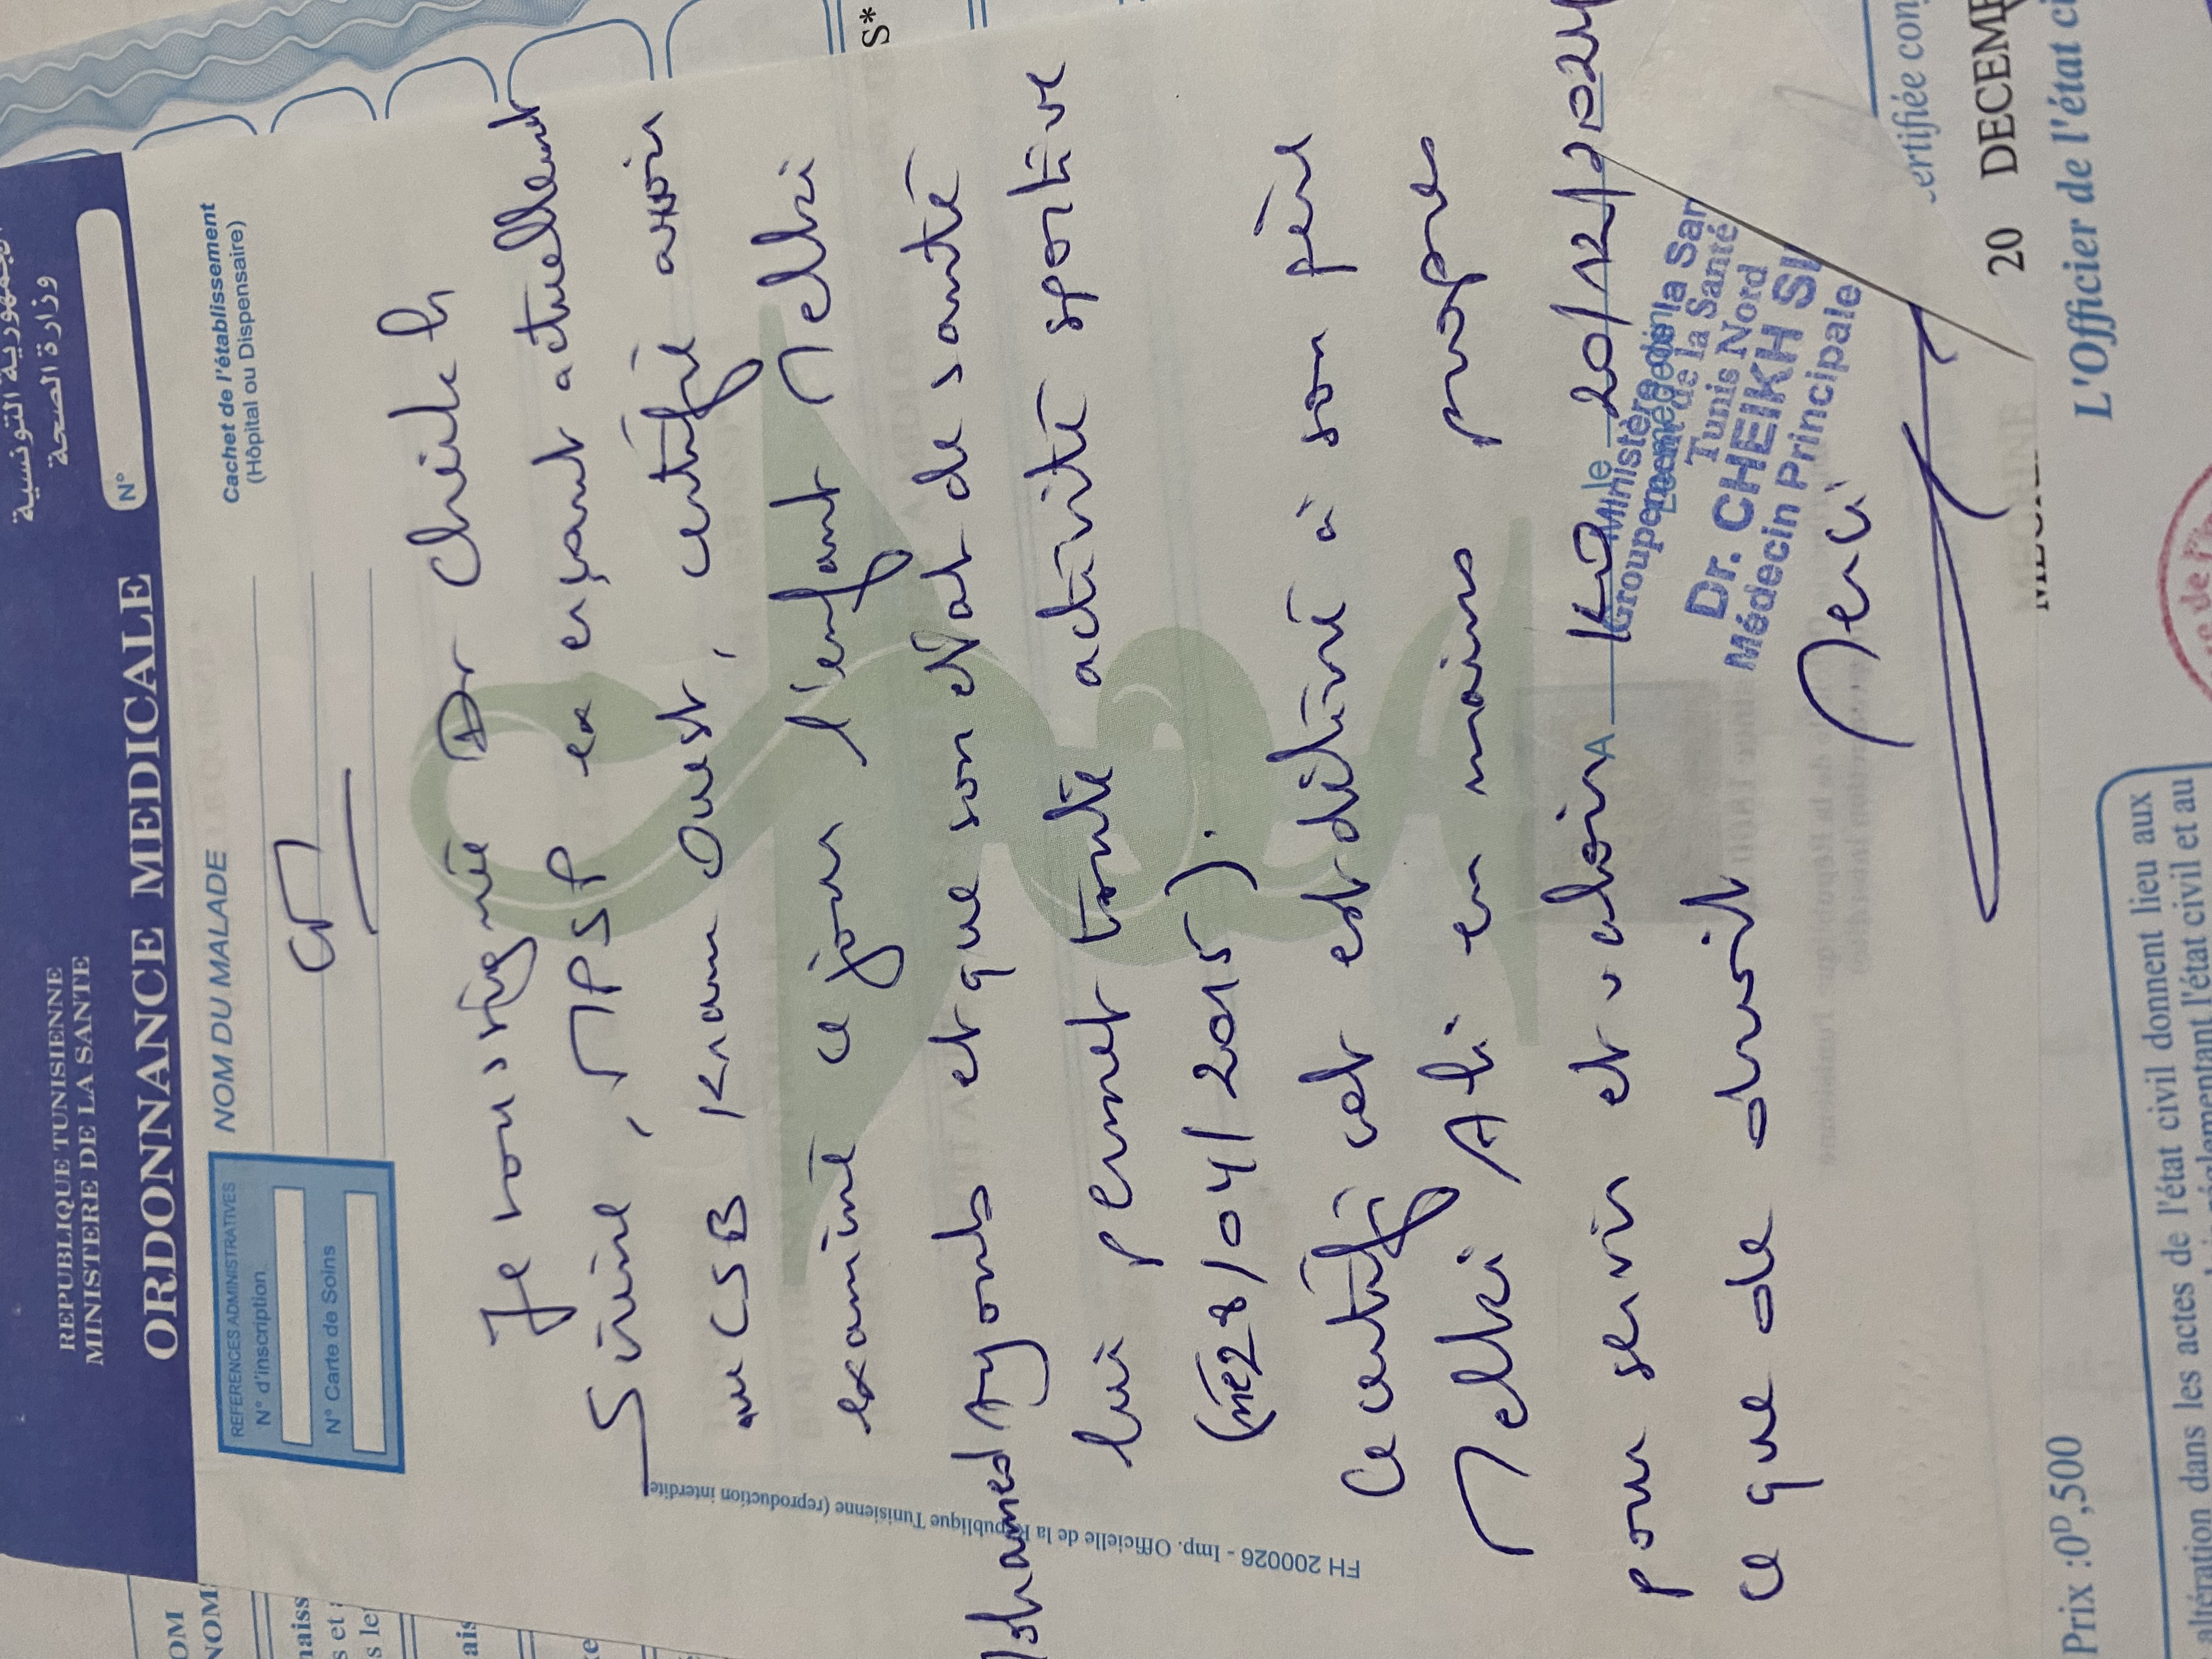 الجمهورية التونسية
وزارة الصحة
REPUBLIQUE TUNISIENNE
MINISTERE DE LA SANTE
ORDONNANCE MEDICALE
N°
REFERENCES ADMINISTRATIVES
N° d'inscription
N° Carte de Soins
NOM DU MALADE
Cachet de l'établissement
(Hôpital ou Dispensaire)
CM
Je soussignée Dr Cheikh
Sirine, MPSP en exerçant actuellement
au CSB Kram Ouest, certifie avoir
examiné ce jour l'enfant Melki
Mohamed Ayoub et que son état de santé
lui permet toute activité sportive
(né 28/04/2015).
Ce certifi cat est délivré à son père
Melki Ali en mains propres
pour servir et valoir
ce que de droit
A KD le 20/12/2024
Ministère de la San
Groupement de la Santé
Tunis Nord
Dr. CHEIKH SI
Médecin Principale
Merci
FH 200026 - Imp. Officielle de la République Tunisienne (reproduction interdite
S*
OM
NOM
naiss
s et
s le
ais
te
ertifiée con
20 DECEM
L'Officier de l'état ci
Prix :0D,500
altération dans les actes de l'état civil donnent lieu aux
réglementant l'état civil et au